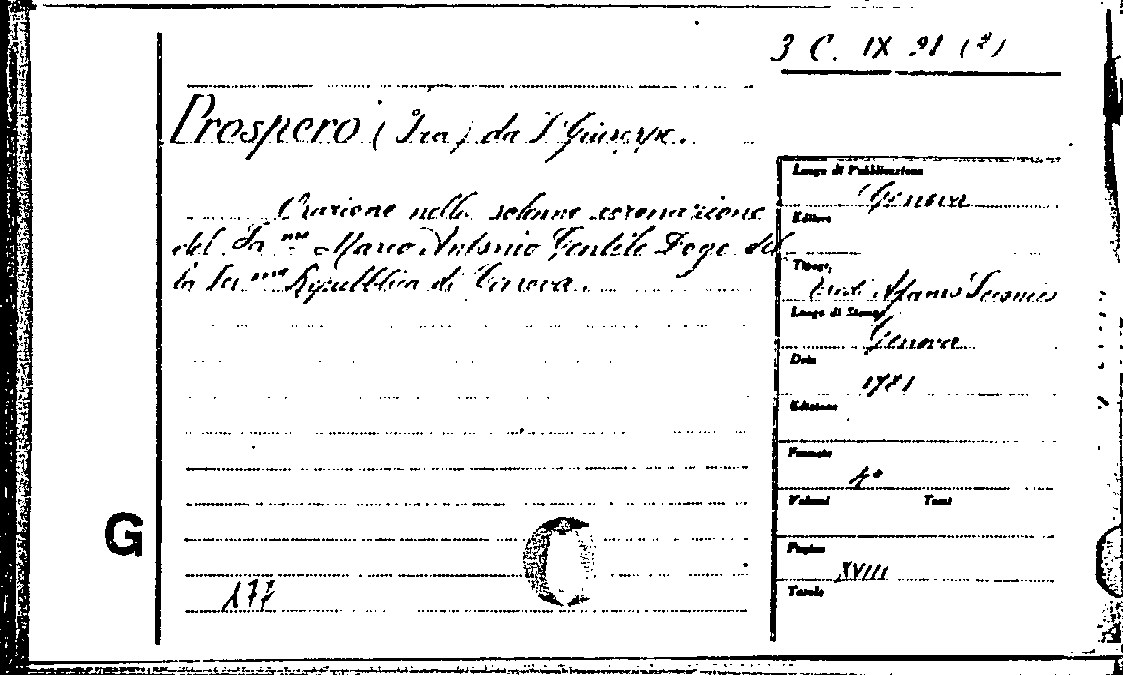 3 C. IX 91 (2)
Prospero (Fra) da S. Giuseppe.
Orazione nella solenne coronazione
del Ser.mo Marco Antonio Gentile Doge del
la Ser.ma Repubblica di Genova.
177
G
Luogo di Pubblicazione
Genova
Editore
Tipogr.
Ered. Adamo Scionico
Luogo di Stampa
Genova
Data
1781
Edizione
Formato
4°
Volumi Tomi
Pagine
XVIII
Tavole